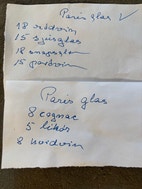 Paris glas ✓
18 rödvin
15 sjusglas
18 snapsglas
15 portvin
Paris glas
8 cognac
5 likör
8 rödvin